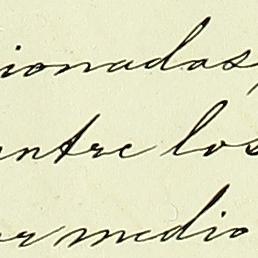 ionadas,
entre los
or medio